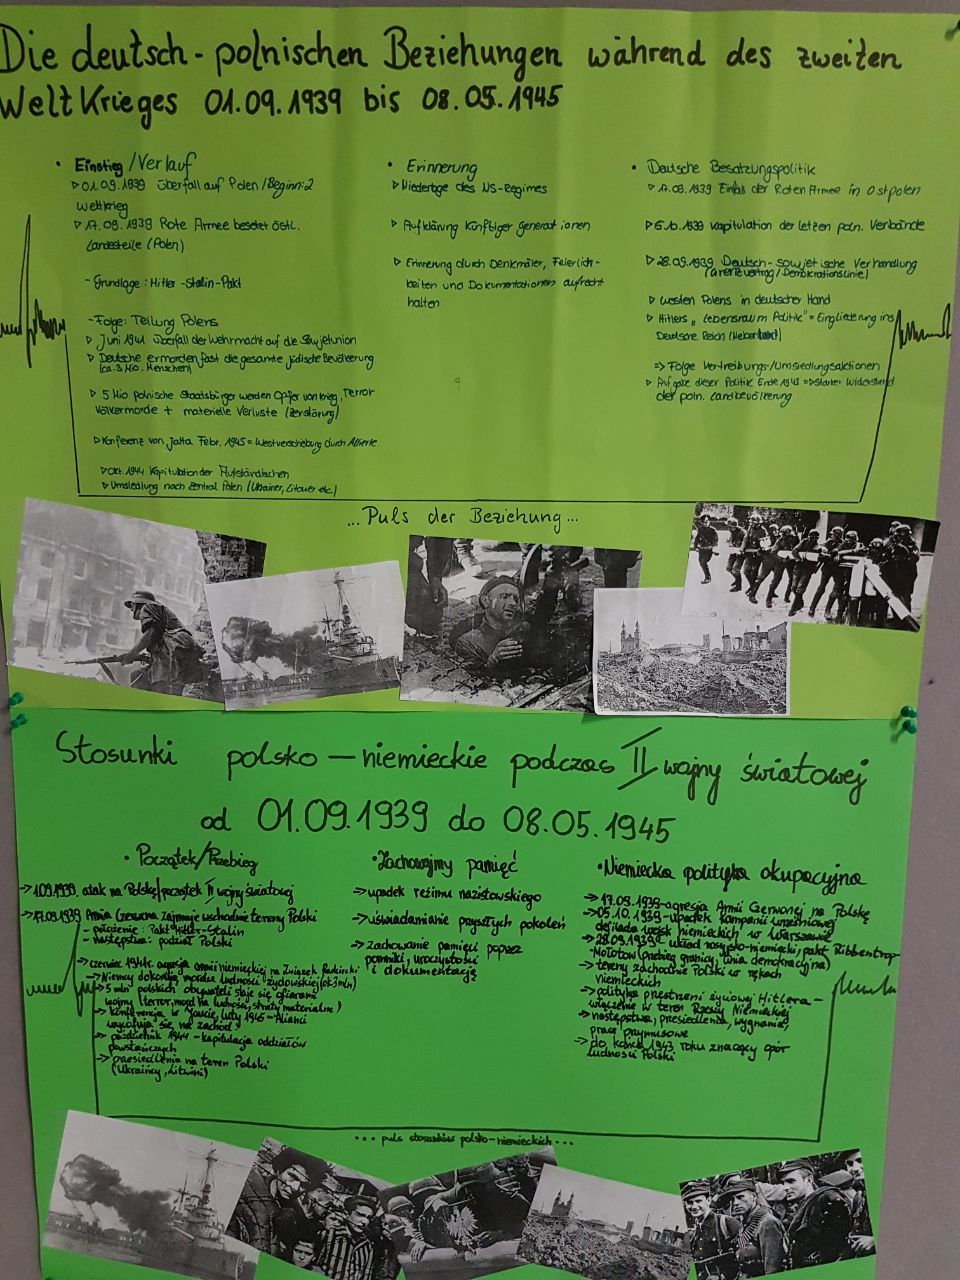 Die deutsch-polnischen Beziehungen während des zweiten
Weltkrieges 01.09.1939 bis 08.05.1945
• Einstieg/Verlauf
▷ 01.09.1939 Überfall auf Polen/Beginn:2
Weltkrieg
▷ 17.09.1939 Rote Armee besetzt östl.
Landesteile (Polen)
- Grundlage: Hitler-Stalin-Pakt
- Folge: Teilung Polens
▷ Juni 1941 Überfall der Wehrmacht auf die Sowjetunion
▷ Deutsche ermorden fast die gesamte jüdische Bevölkerung
(ca. 3 Mio. Menschen)
▷ 5 Mio polnische Staatsbürger werden Opfer von Krieg, Terror
Völkermorde + materielle Verluste (Zerstörung)
▷ Konferenz von Jalta Febr. 1945 = Westverschiebung durch Alliierte
▷ Okt. 1944 Kapitulation der
▷ Umsiedlung nach Zentral Polen (Ukrainer, Litauer etc.)
• Erinnerung
▷ Niederlage des NS-Regimes
▷ Aufklärung künftiger Generationen
▷ Erinnerung durch Denkmäler, Feierlich-
keiten und Dokumentationen aufrecht
halten
• Deutsche Besatzungspolitik
▷ 17.09.1939 Einfall der Roten Armee in Ostpolen
▷ 6.10.1939 Kapitulation der letzen poln. Verbände
▷ 28.09.1939 Deutsch-sowjetische Verhandlung
▷ Westen Polens in deutscher Hand
▷ Hitlers "Lebensraum Politik" = Eingliederung ins
Deutsche Reich
=> Folge Vertreibungs-/Umsiedlungsaktionen
▷ Aufgabe dieser Politik Ende 1943 => starker Widerstand
der poln. Landbevölkerung
... Puls der Beziehung...
Stosunki polsko-niemieckie podczas II wojny światowej
od 01.09.1939 do 08.05.1945
• Początek/Przebieg
→ 1.09.1939 atak na Polskę/początek II wojny światowej
→ 17.09.1939 Armia Czerwona zajmuje wschodnie tereny Polski
- położenie: Pakt Hitler-Stalin
- następstwa: podział Polski
→ czerwiec 1941r. agresja armii niemieckiej na Związek Radziecki
→ Niemcy dokonują mordu ludności żydowskiej (ok 3 mln)
→ 5 mln polskich obywateli staje się ofiarami
wojny (terror, mord na ludności, straty materialne)
→ konferencja w Jałcie, luty 1945-Alianci
wycofują się na zachód
→ październik 1944 - kapitulacja oddziałów
powstańczych
→ przesiedlenia na teren Polski
(Ukraińcy, Litwini)
• Zachowajmy pamięć
→ upadek reżimu nazistowskiego
→ uświadamianie przyszłych pokoleń
→ zachowanie pamięci poprzez
pomniki, uroczystości
i dokumentację
• Niemiecka polityka okupacyjna
→ 17.09.1939-agresja Armii Czerwonej na Polskę
→ 05.10.1939-upadek kampanii wrześniowej
defilada wojsk niemieckich w Warszawie
→ 28.09.1939r. układ rosyjsko-niemiecki; pakt Ribbentrop-
Mołotow (przebieg granicy; linia demokracyjna)
→ tereny zachodnie Polski w rękach
niemieckich
→ polityka przestrzeni życiowej Hitlera -
włączenie w teren Rzeszy Niemieckiej
→ następstwa; przesiedlenia, wygnanie,
prace przymusowe
→ do końca 1943 roku znaczący opór
ludności Polski
... puls stosunków polsko-niemieckich...